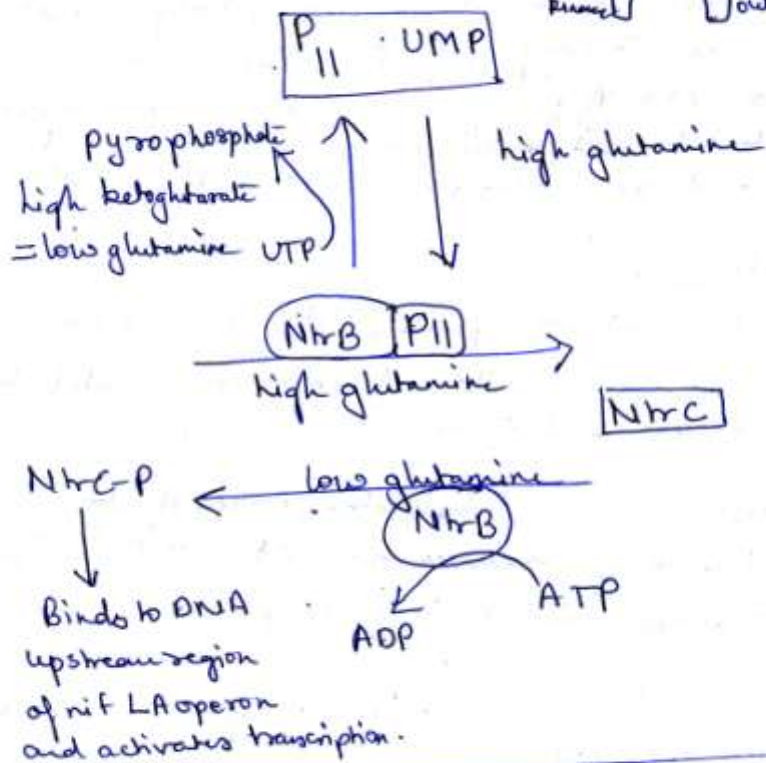 P II . UMP
pyrophosphate
high glutamine
high ketoglutarate
= low glutamine UTP
NtrB PII
high glutamine
NtrC
NtrC-P
low glutamine
NtrB
ATP
ADP
Binds to DNA
upstream region
of nif LA operon
and activates transcription.